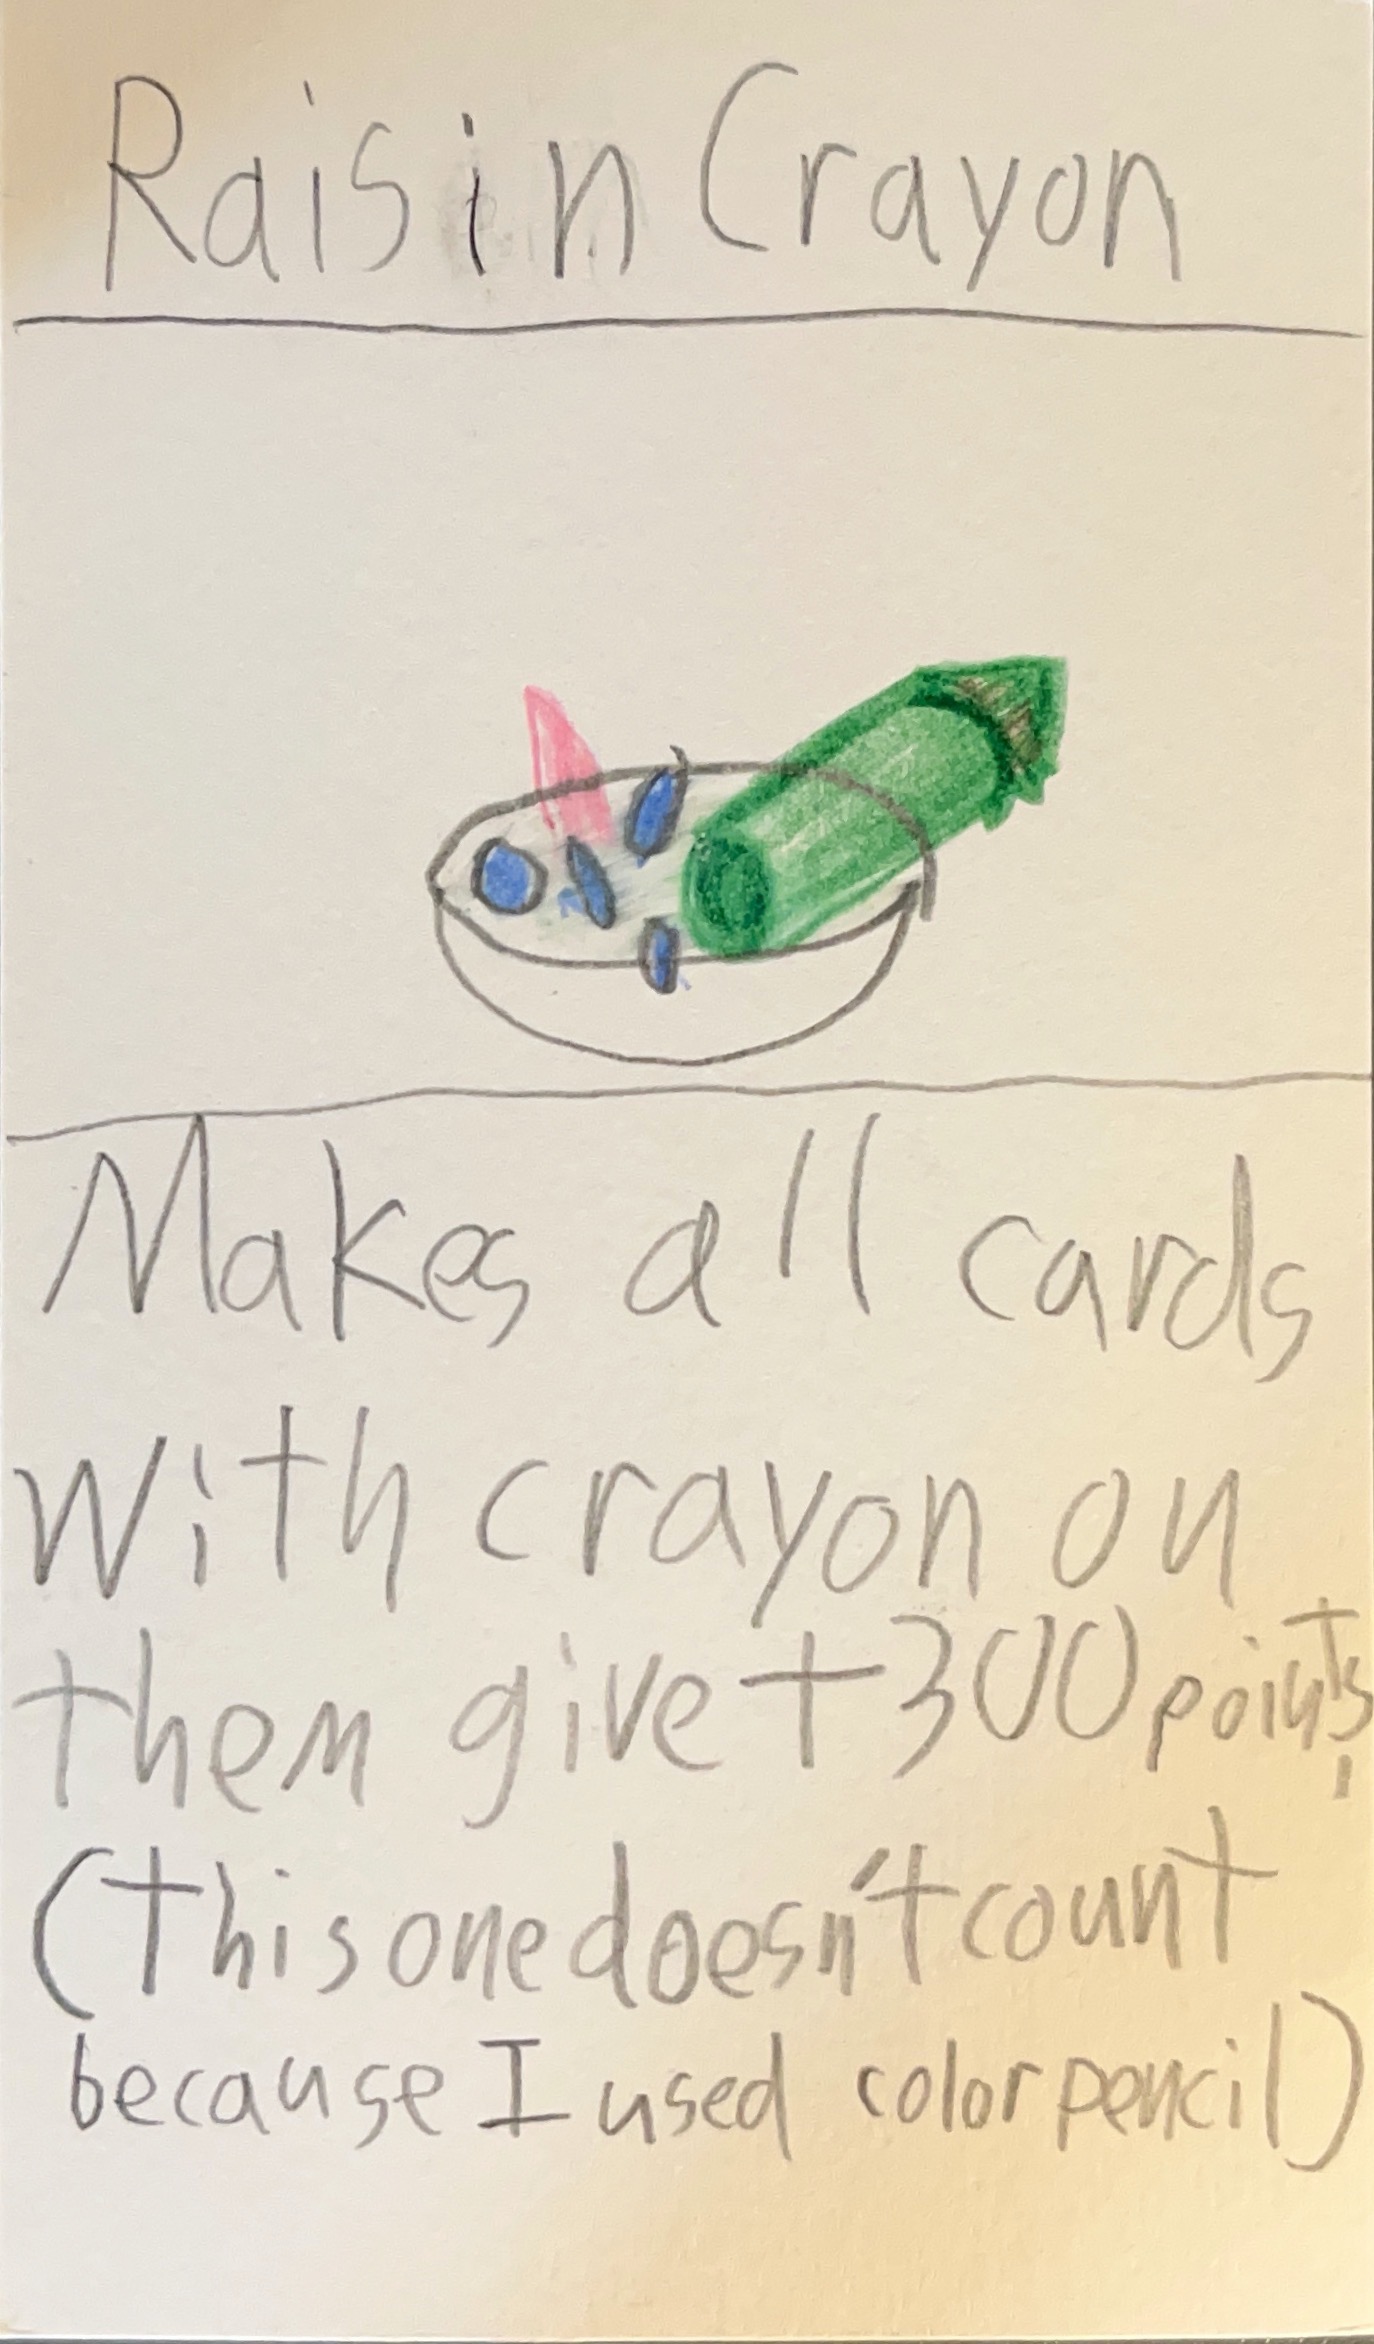 Raisin Crayon
Makes all cards
with crayon on
them give +300 points!
(this one doesn't count
because I used color pencil)